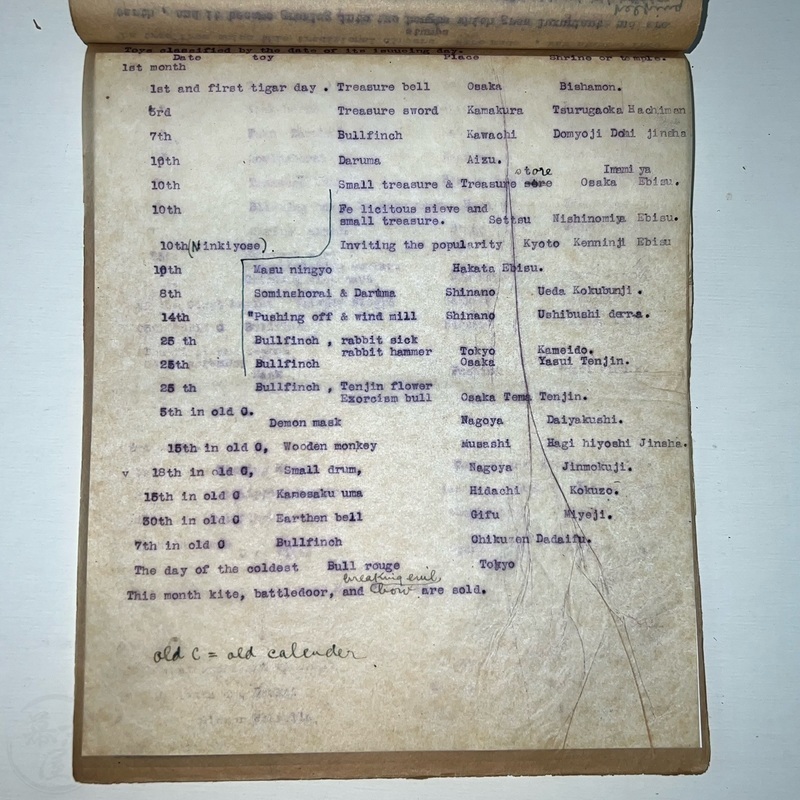 Toys classified by the date of its issueing day.
Date toy Place Shrine or temple.
1st month
1st and first tigar day . Treasure bell Osaka Bishamon.
3rd Treasure sword Kamakura Tsurugaoka Hachiman
7th Bullfinch Kawachi Domyoji Domi jinsha
10th Daruma Aizu.
store Imami ya
10th Small treasure & Treasure sore Osaka Ebisu.
10th Fe licitous sieve and
small treasure. Settsu Nishinomiya Ebisu.
10th(Ninkiyose). Inviting the popularity Kyoto Kenninji Ebisu
10th Masu ningyo Hakata Ebisu.
8th Sominshorai & Daruma Shinano Ueda Kokubunji .
14th "Pushing off & wind mill Shinano Ushibushi derra.
25 th Bullfinch , rabbit sick
rabbit hammer Tokyo Kameido.
25th Bullfinch Osaka Yasui Tenjin.
25 th Bullfinch , Tenjin flower
Exorcism bull Osaka Tema Tenjin.
5th in old C.
Demon mask Nagoya Daiyakushi.
15th in old C, Wooden monkey Musashi Hagi hiyoshi Jinsha.
v 18th in old C, Small drum, Nagoya Jinmokuji.
15th in old C Kamesaku uma Hidachi Kokuzo.
30th in old C Earthen bell Gifu Miyeji.
7th in old C Bullfinch Chikuzen Dadaifu.
The day of the coldest Bull rouge Tokyo
breaking evil
This month kite, battledoor, and bow are sold.
old C = old calender